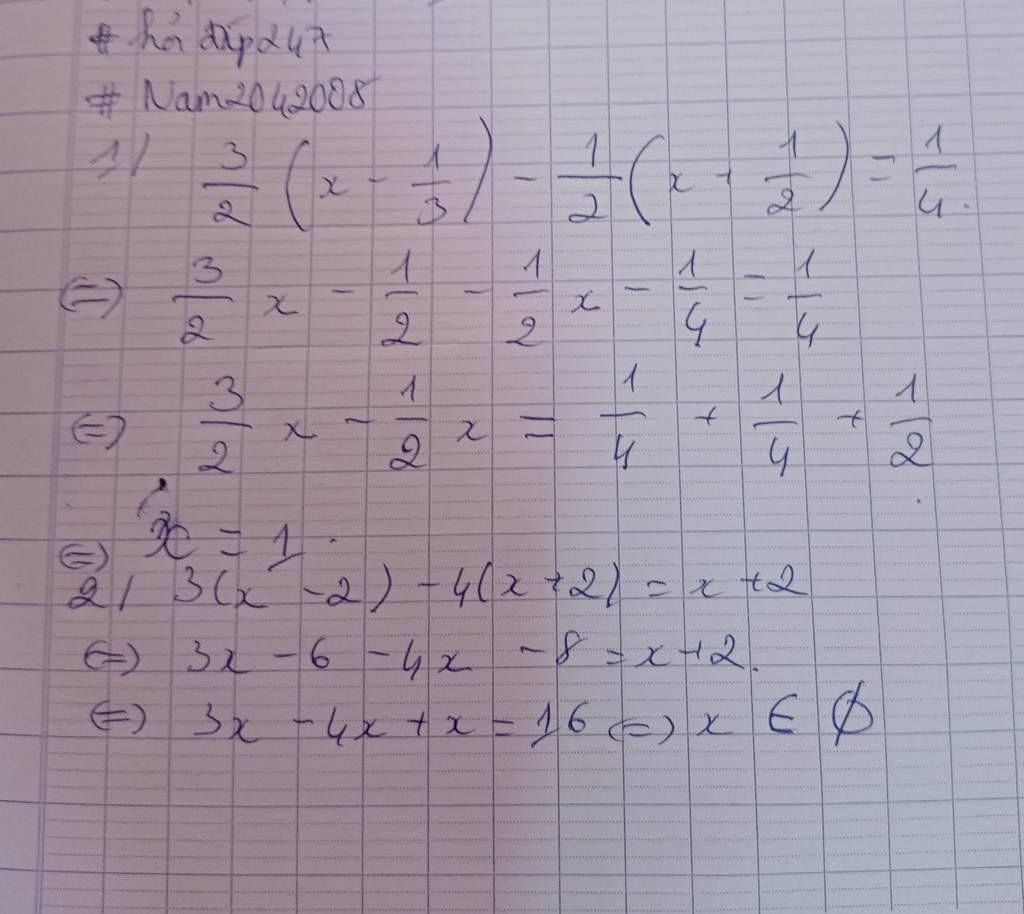 # hỏi đáp247
# Nam2042008
1/ 3/2 (x - 1/3) - 1/2 (x + 1/2) = 1/4.
⇔ 3/2 x - 1/2 - 1/2 x - 1/4 = 1/4
⇔ 3/2 x - 1/2 x = 1/4 + 1/4 + 1/2
⇔ x = 1.
2/ 3(x - 2) - 4(x + 2) = x + 2
⇔ 3x - 6 - 4x - 8 = x + 2.
⇔ 3x - 4x + x = 16 ⇔ x ∈ ∅